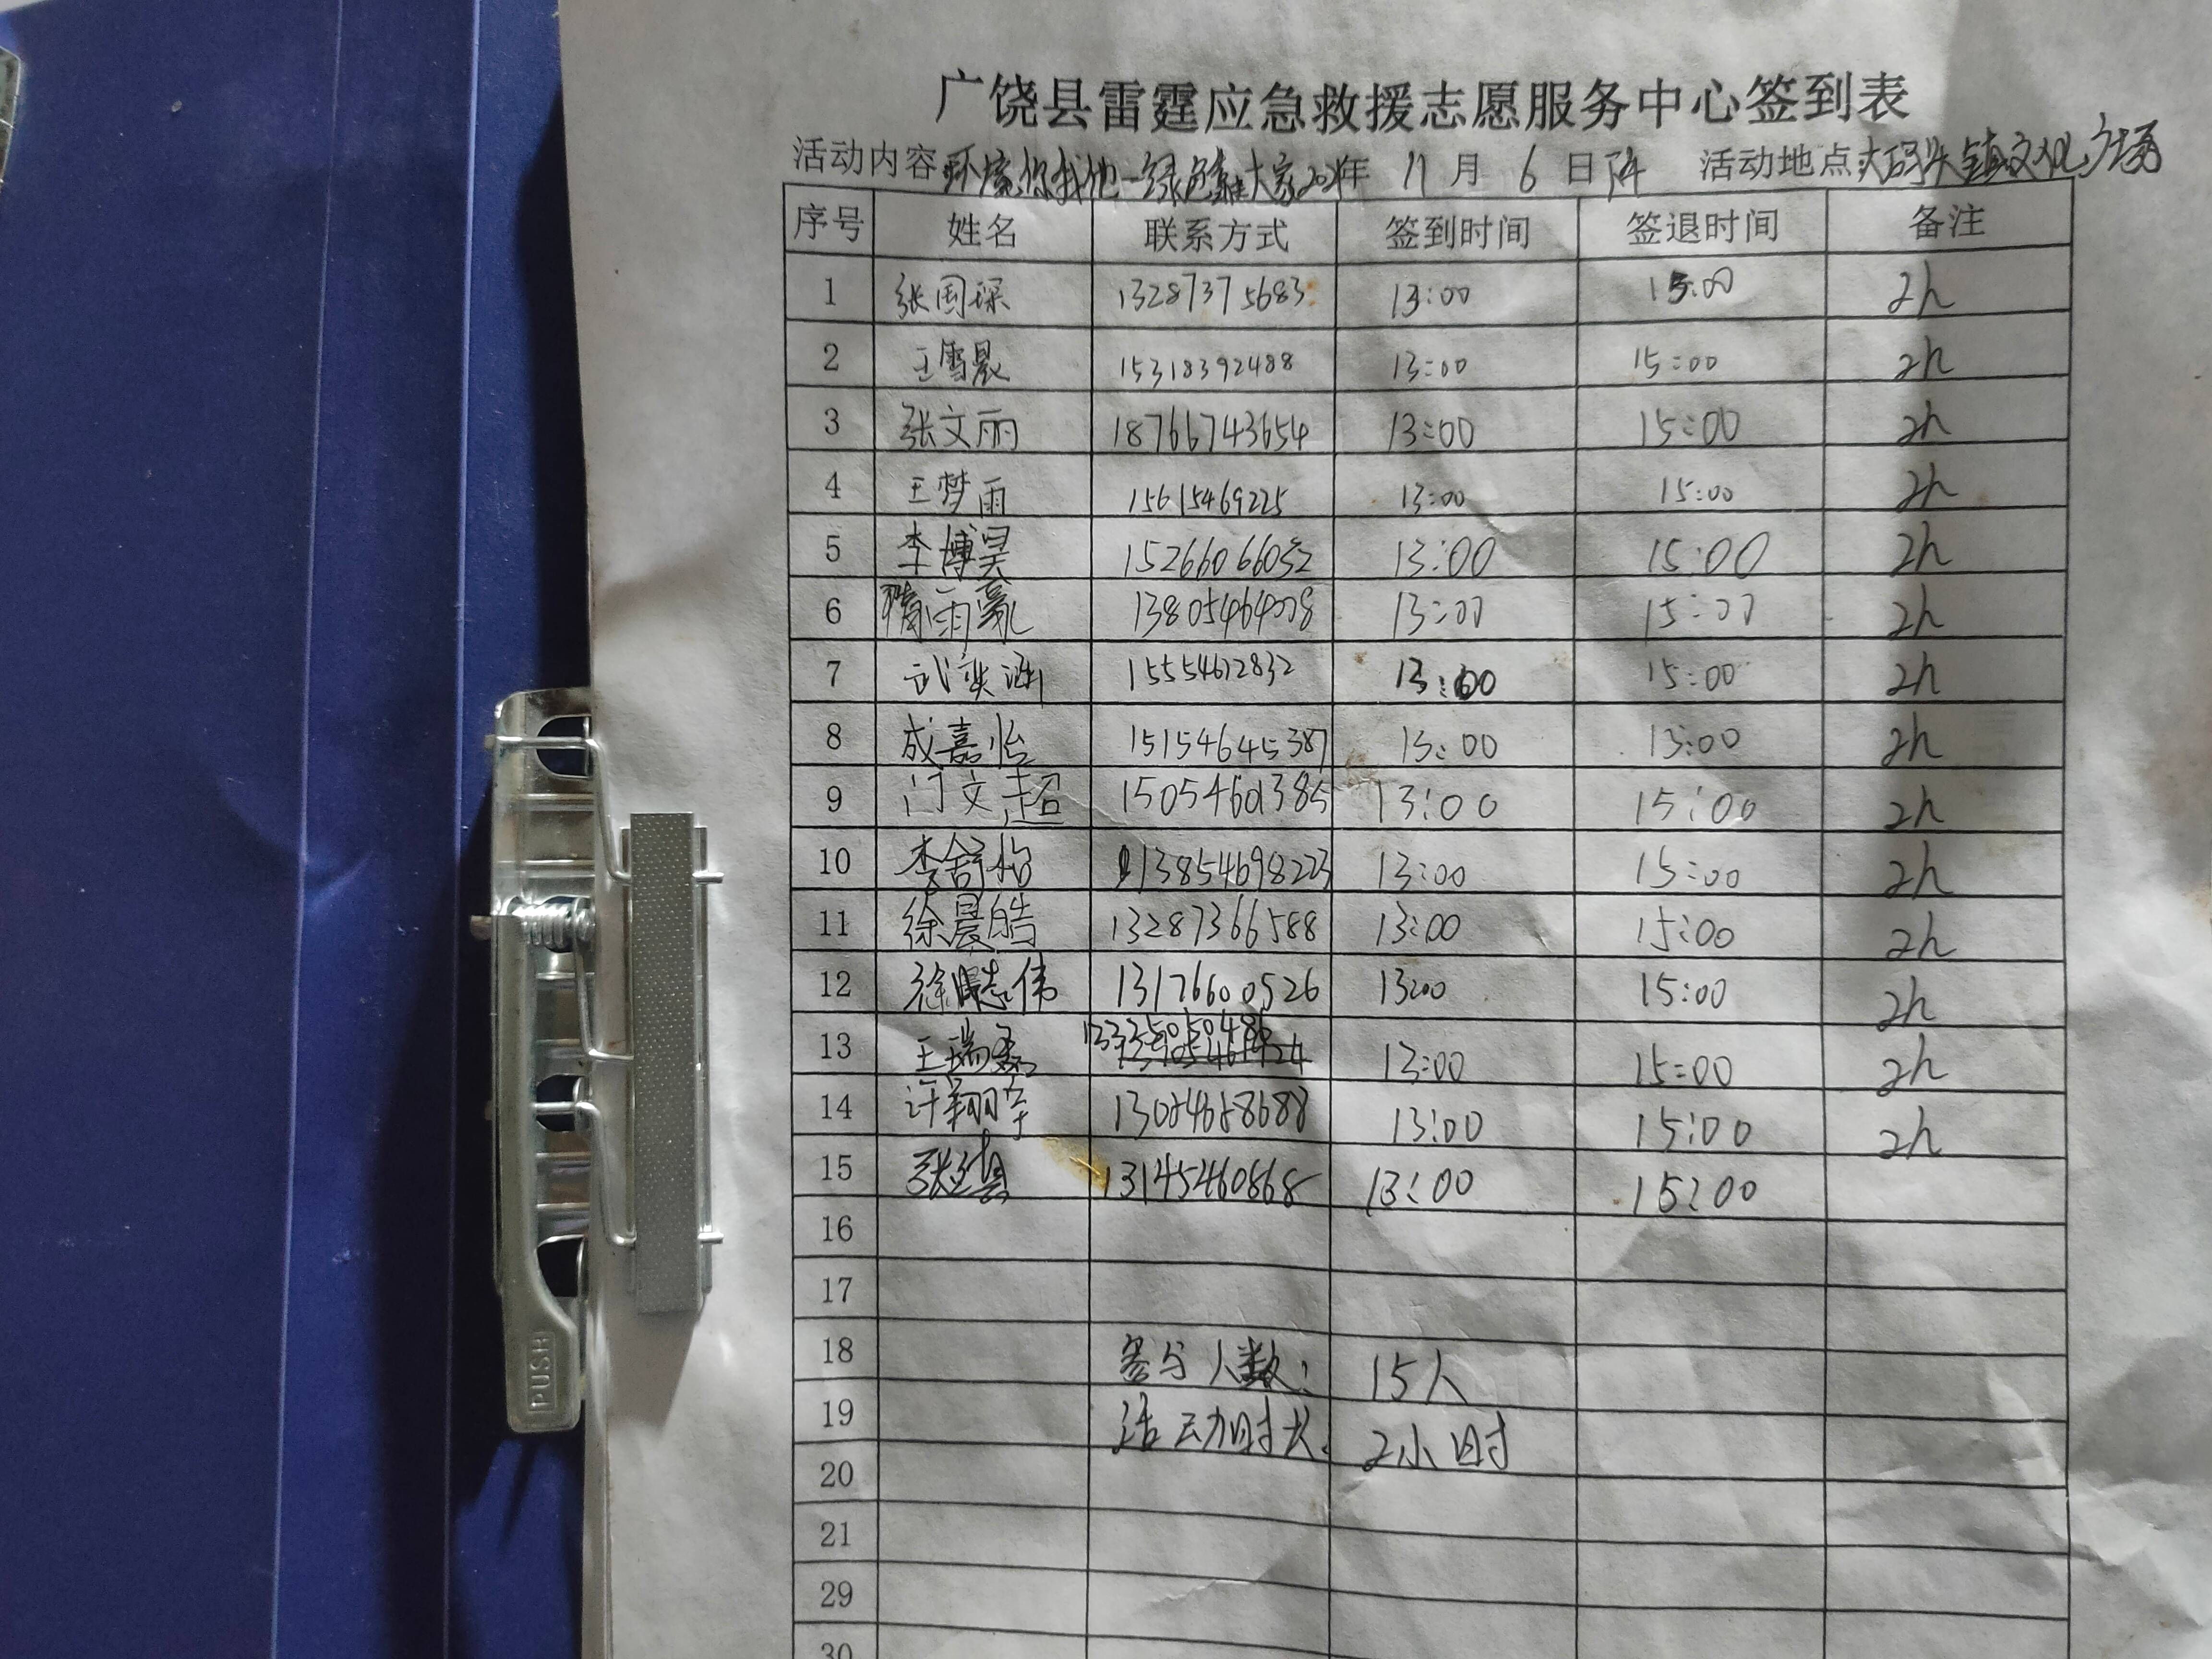 广饶县雷霆应急救援志愿服务中心签到表
活动内容 环境你我他一绿色靠大家 2021年 11月 6日 活动地点 大码头镇文化广场
序号 姓名 联系方式 签到时间 签退时间 备注
1 张国琛 13287375683 13:00 15:00 2h
2 王雪晨 15318392488 13:00 15:00 2h
3 张文雨 18766743654 13:00 15:00 2h
4 王梦雨 15615469225 13:00 15:00 2h
5 李博昊 15266066052 13:00 15:00 2h
6 隋雨豪 13:00 15:00 2h
7 武奕涵 15554612832 13:00 15:00 2h
8 成嘉怡 15154645387 13:00 13:00 2h
9 门文超 15054601385 13:00 15:00 2h
10 李舒怡 13854698223 13:00 15:00 2h
11 徐晨皓 13287366588 13:00 15:00 2h
12 徐志伟 13176600526 13:00 15:00 2h
13 王瑞 13:00 15:00 2h
14 许翔宇 13:00 15:00 2h
15 张 13145460868 13:00 15:00
16
17
18 参与人数: 15人
19 活动时长 2小时
20
21
29
30
PUSH